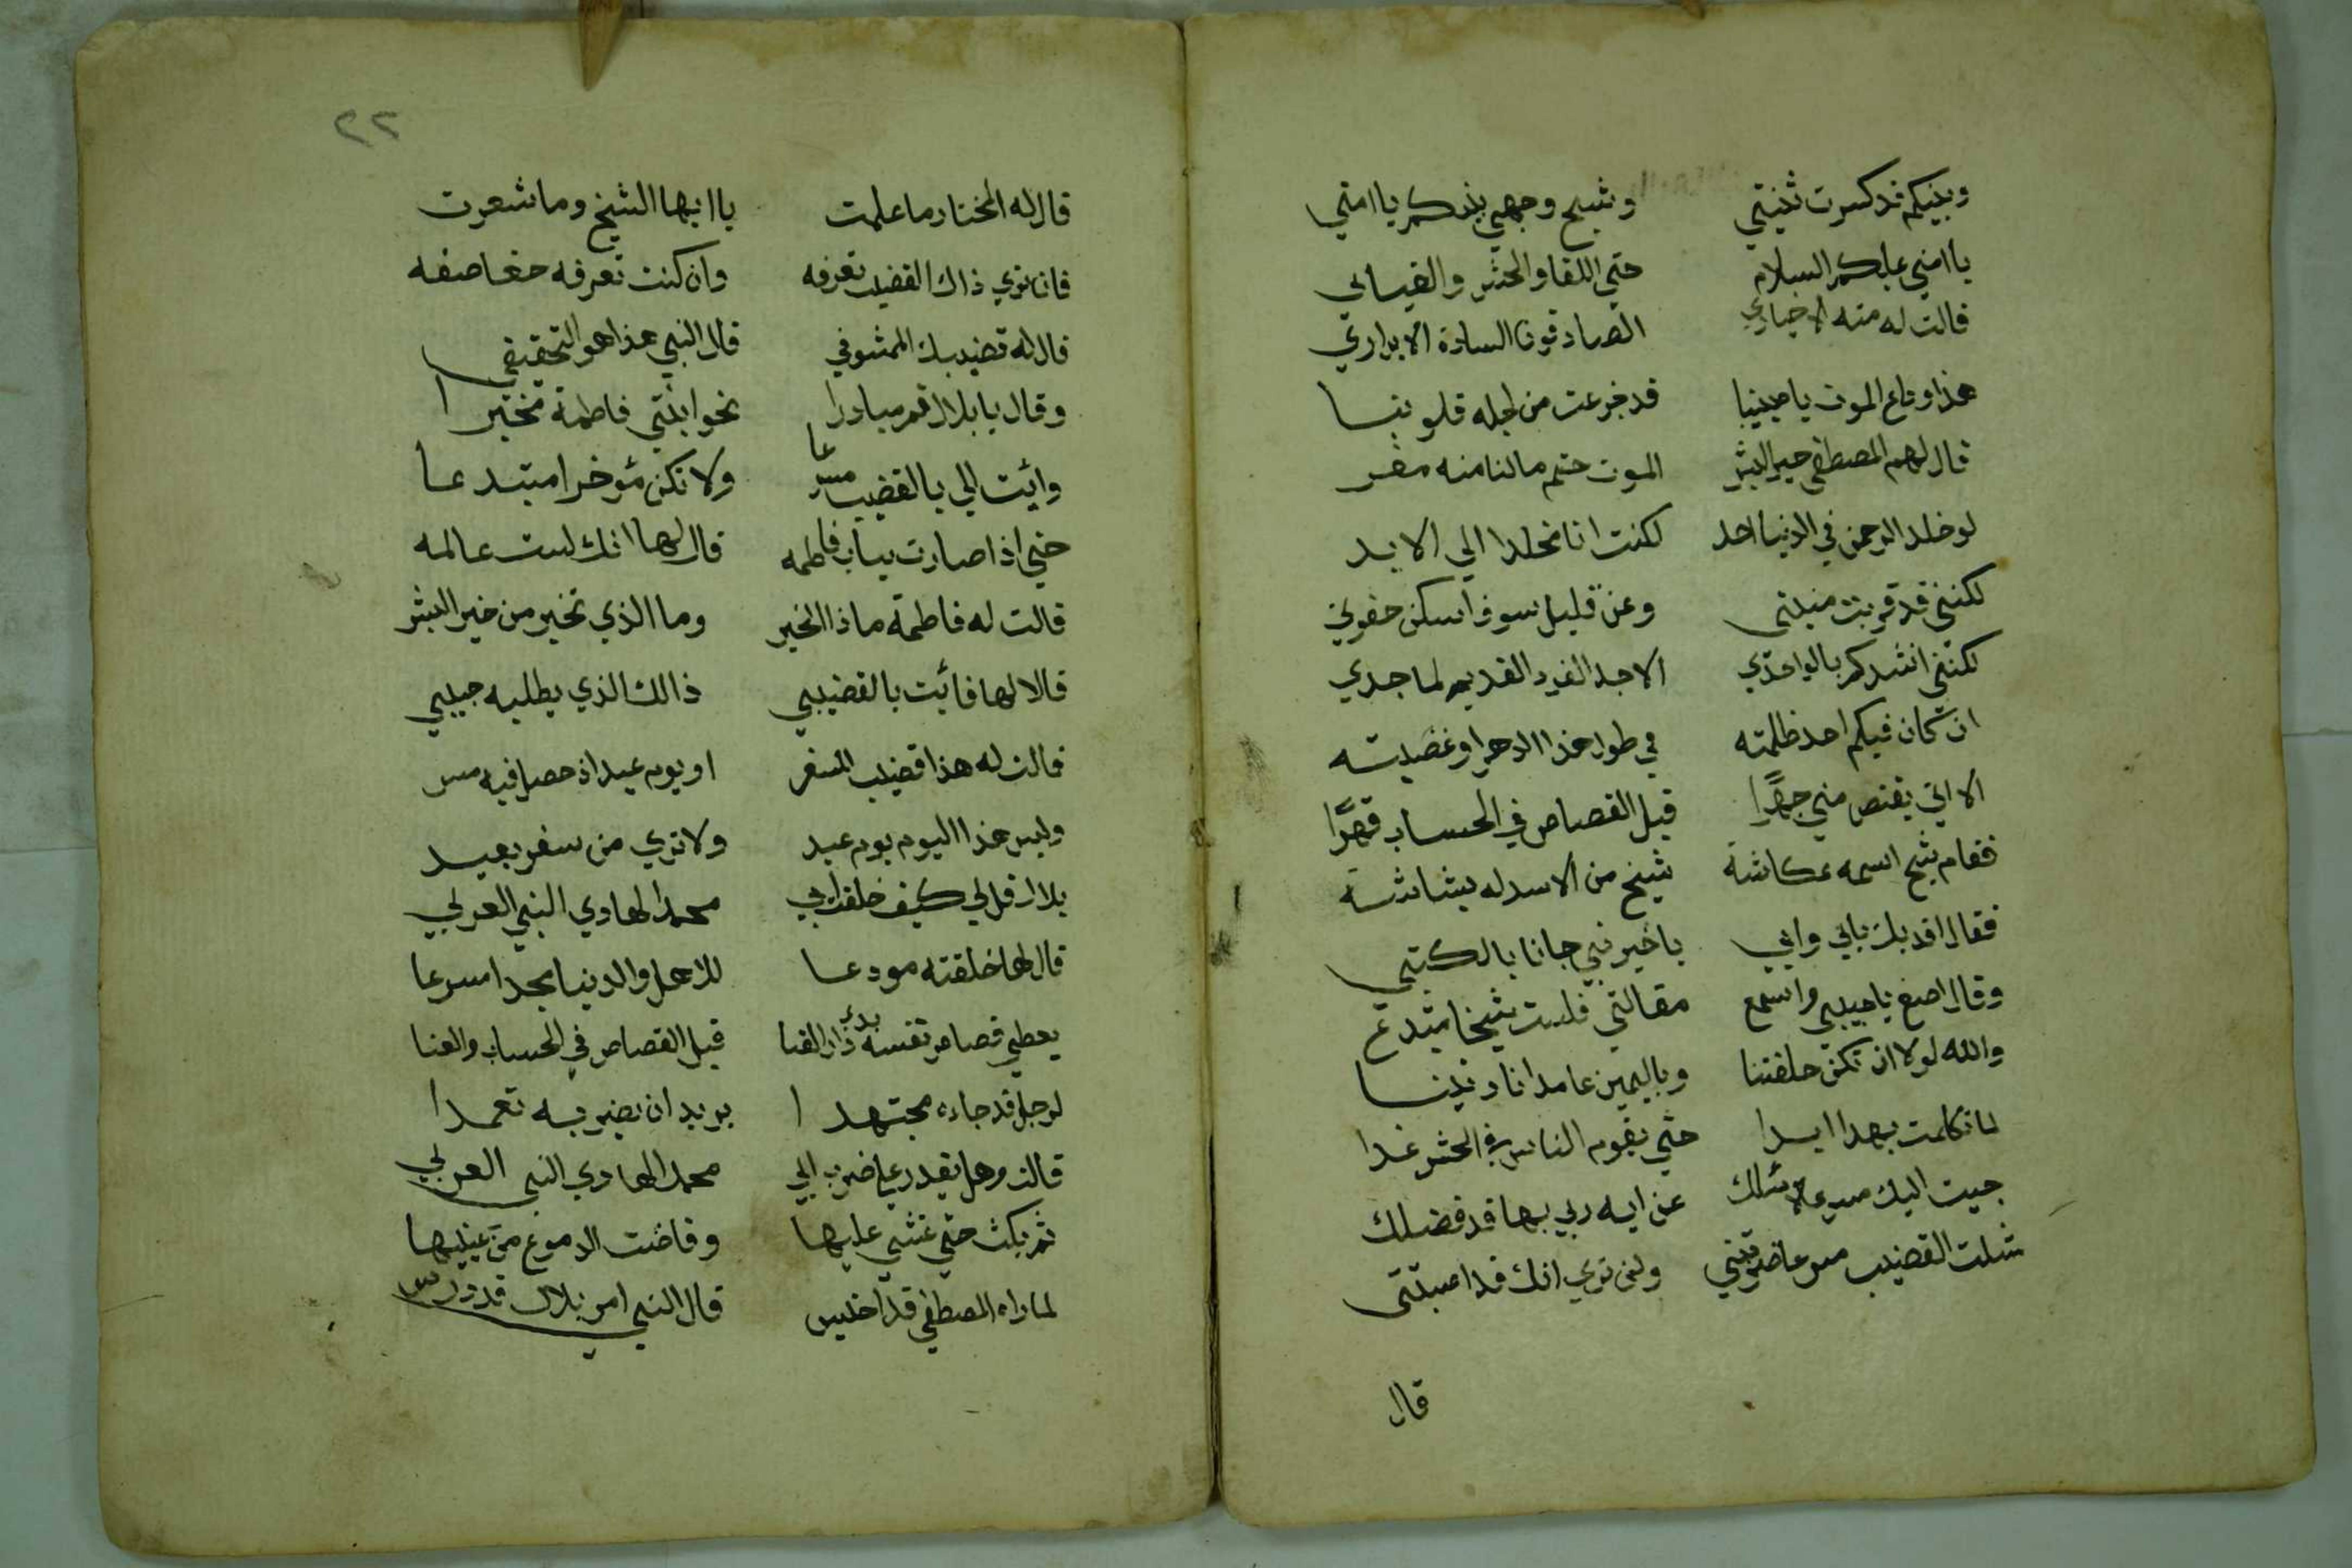 وبينكم قد كسرت ثنيتي وشج وجهي بينكم يا امتي
يا امتي عليكم السلام حتي اللقا والحشر والقيامي
قالت له منه الاخياري الصادقون السادة الابراري
هذا وداع الموت يا حبيبنا قد جزعت من اجله قلوبنا
قال لهم المصطفي خير البشر الموت حتم مالنا منه مفر
لو خلد الرحمن في الدنيا احد لكنت انا مخلدا الي الابد
لكنني قد قربت منيتي وعن قليل سوف اسكن حفرتي
لكنني انشدكم بالواحدي الاحد الفرد القديم الماجدي
ان كان فيكم احد ظلمته في طول هذا الدهر او غصبته
الا اتي يقتص مني جهرًا قبل القصاص في الحساب قهرًا
فقام شيخ اسمه عكاشة شيخ من الاسد له بشاشة
فقال افديك بابي وامي يا خير نبي جانا بالكتبي
وقال اصغ يا حبيبي واسمع مقالتي فلست شيخا مبتدع
والله لولا ان تكن حلفتنا وباليمين عامدا ناديتنا
لما تكلمت بهدا ابدا حتي يقوم الناس في الحشر غدا
جيت اليك مسرعا لاسئلك عن ايه ربي بها قد فضلك
شلت القضيب مسرعا ضربتني ولن تري انك قد اصبتني
قال
٢٢
قال له المختار ما علمت يا ايها الشيخ وما شعرت
فان تري ذاك القضيب تعرفه وان كنت تعرفه حقا صفه
قال له قضيبك الممشوقي قال النبي هذا هو التحقيقي
وقال يا بلال قم مبادرا نحو ابنتي فاطمة مخبرا
وائت الي بالقضيب مسرعا ولا تكن مؤخرا مبتدعا
حتي اذا صارت بباب فاطمه قال لها انك لست عالمه
قالت له فاطمة ماذا الخبر وما الذي تخبر من خير البشر
قالا لها فائت بالقضيبي ذالك الذي يطلبه حبيبي
قالت له هذا قضيب السفر او يوم عيد اذ حصل فيه
وليس هذا اليوم يوم عيد ولا تري من سفر بعيد
بلال قل لي كيف خلفت ابي محمد الهادي النبي العربي
قال لها خلفته مودعا للاهل والدنيا مجدا مسرعا
يعطي قصاص نفسه بدي دار الفنا قبل القصاص في الحساب والعنا
لرجل قد جاءه مجتهدا يريد ان يضربه تعمدا
قالت وهل يقدر علي ضرب ابي محمد الهادي النبي العربي
ثم بكت حتي غشي عليها وفاضت الدموع من عينيها
لما راه المصطفي قد اختلس قال النبي امر بلال قد